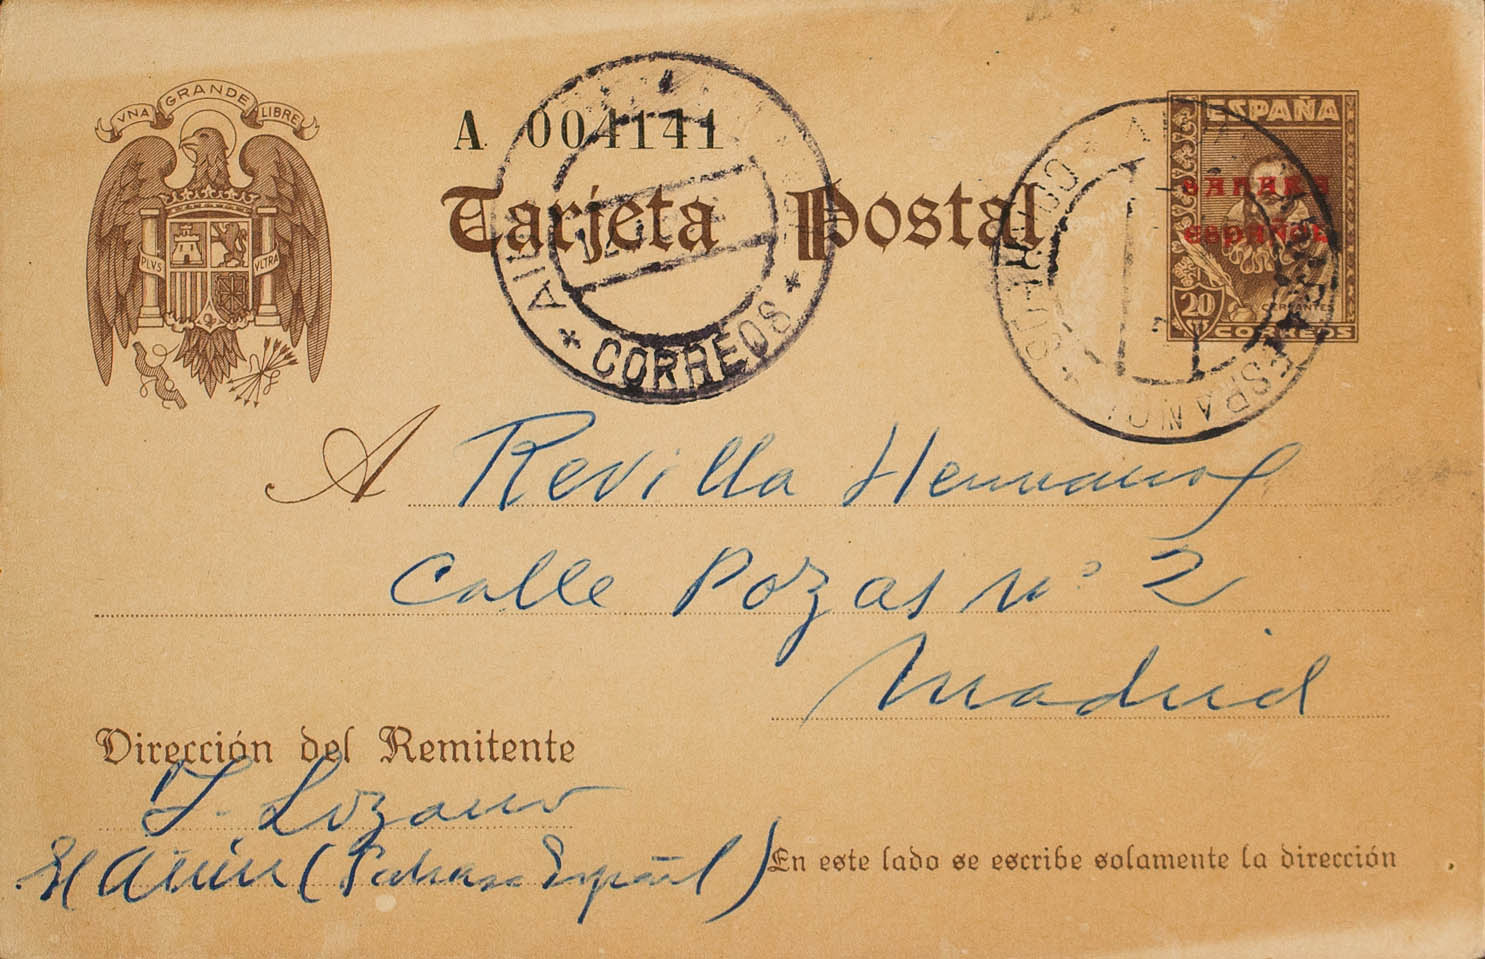 VNA GRANDE LIBRE
PLVS VLTRA
A 004141
Tarjeta Postal
CORREOS
ESPAÑA
SAHARA
ESPAÑOL
20
CORREOS
A Revilla Hermanos
Calle Pozas nº 2
Madrid
Dirección del Remitente
Lozano
El Aiun (Sahara Español)
En este lado se escribe solamente la dirección